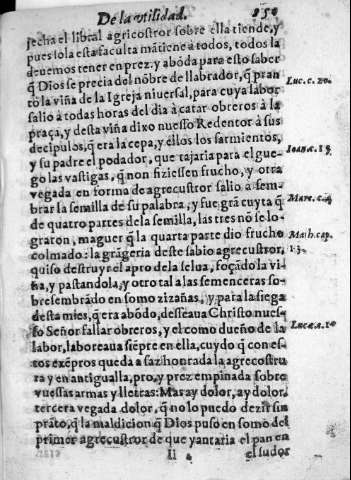 De la vtilidad. 150
fecha el libral agricostror sobre ella tiende, y
pues sola esta faculta mãtiene a todos, todos la
deuemos tener en prez, y abõda para esto saber
q̃ Dios se precia del nõbre de llabrador, q̃ pran
tò la viña de la Igreja niuersal, para cuya labor
salio à todas horas del dia à catar obreros à la
praça, y desta viña dixo nuesso Redentor à sus
decipulos, q̃ era la cepa, y ellos los sarmientos,
y su padre el podador, que tajaria para el gue-
go las vastigas, q̃ non fiziessen frucho, y otra
vegada en forma de agrecustror salio a sem-
brar la semilla de su palabra, y fue grã cuyta q̃
de quatro partes de la semilla, las tres nõ se lo-
graron, maguer q̃ la quarta parte dio frucho
colmado: la grãgeria deste sabio agrecustror,
quiso destruyr el apro de la selua, foçãdo la vi-
ña, y pastandola, y otro tal a las semenceras so-
bresembrãdo en somo zizañas, y para la siega
desta mies, q̃ era abõdo, desseaua Christo nues-
so Señor fallar obreros, y el como dueño de la
labor, laboreaua siẽpre en ella, cuydo q̃ con es-
tos exẽpros queda a saz honrada la agrecostru
ra y en antigualla, pro, y prez empinada sobre
vuessas armas y lletras: Mas ay dolor, ay dolor,
tercera vegada dolor, q̃ no lo puedo dezir sin
prãto, q̃ la maldicion q̃ Dios puso en somo del
primer agrecustror de que yantaria el pan en
Ii 4 el sudor
Luc. c. 20.
Ioanæ. 15
Marc. c. 4
Math. cap.
13.
Lucæ. 10